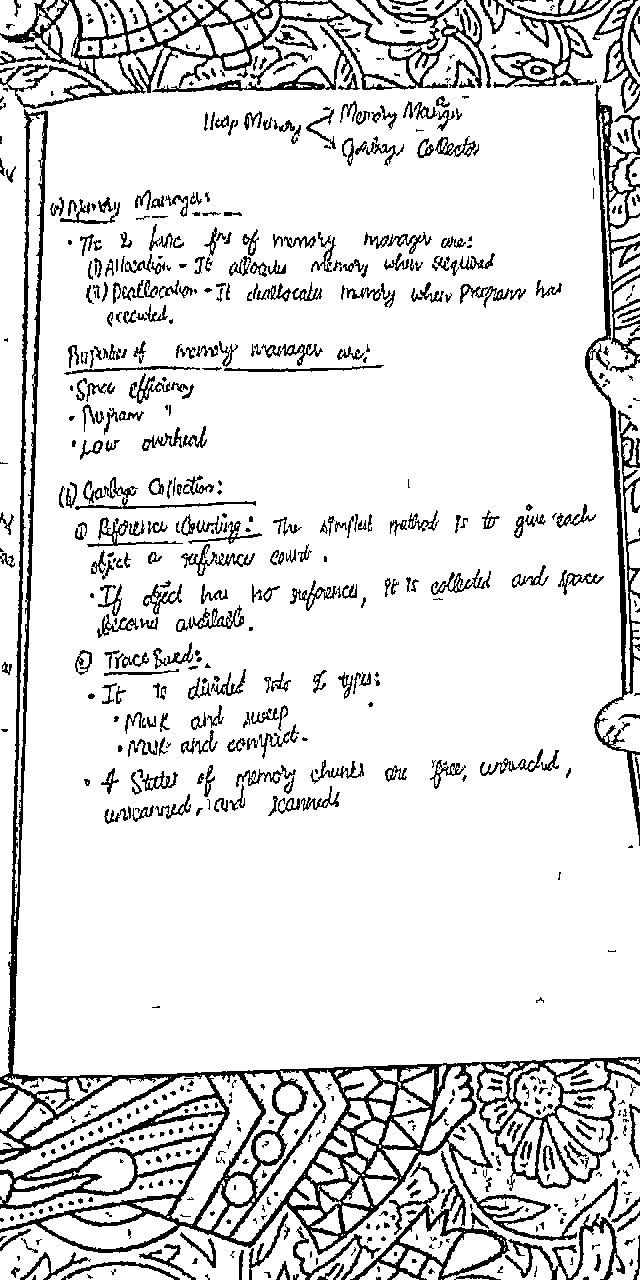 Heap Memory → Memory Manager
→ Garbage Collector
(a) Memory Managers
• The 2 basic fns of memory manager are:
(i) Allocation - It allocates memory when required
(ii) Deallocation - It deallocates memory when program has
executed.
Properties of memory manager are:
• Space efficiency
• Program "
• Low overhead
(b) Garbage Collection:
① Reference Counting: The simplest method is to give each
object a reference count.
• If object has no references, it is collected and space
become available.
② Trace Based:
• It is divided into 2 types:
• Mark and sweep
• Mark and compact.
• 4 States of memory chunks are free, unreached,
unscanned, and scanned